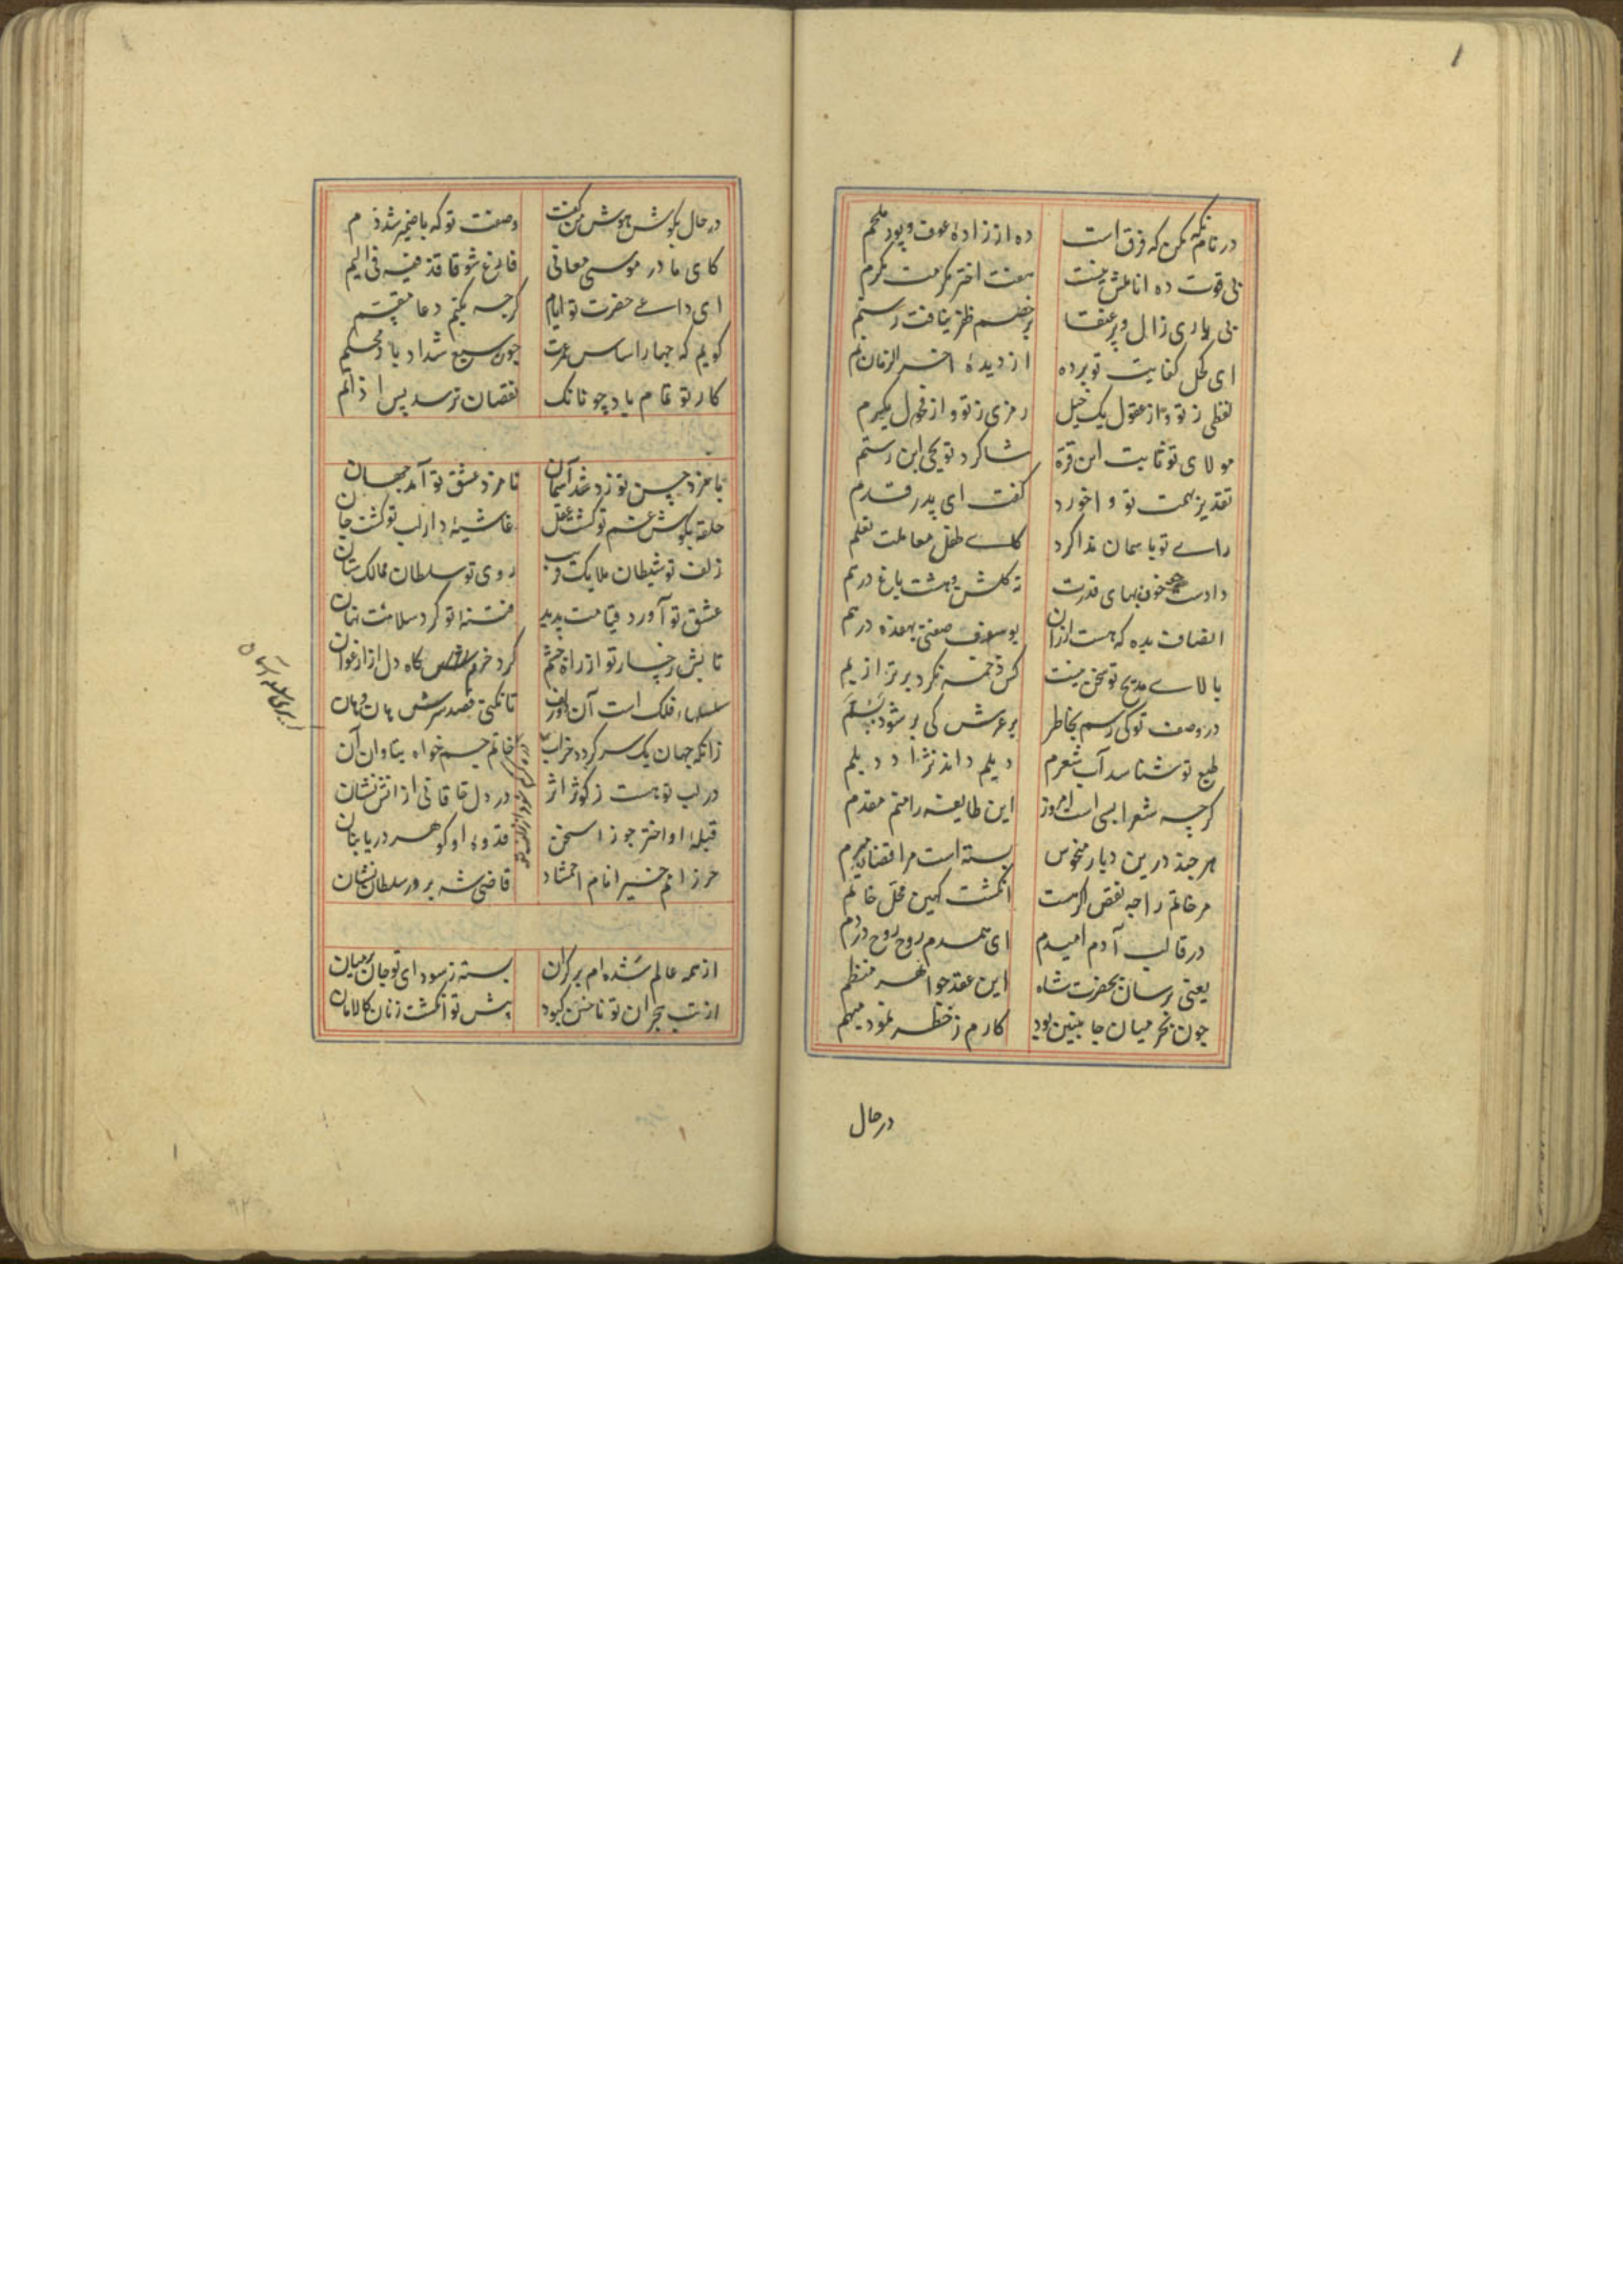 در نام نکه مکن که فرق است ده از زاده عوف و پور ملحم
بی قوت ده اناملش نیست هفت اختر مکرمت مکرم
بی یاری زال و پر عنقا بر خصم ظفر نیافت رستم
ای کحل کفایت تو برده از دیده آخر الزمان نم
لفظی ز تو و از عقول یک خیل رمزی ز تو و از فحول یکرم
مولای تو ثابت ابن قره شاکرد تو یحیی ابن رستم
تقدیر همت تو واخورد کفت ای پدر قدم
رای تو باسمان ندا کرد کای طفل معاملت تعلم
دادست خون بهای قدرت نه کلشن و هشت باغ درهم
انصاف بده که هست ارزان یوسف صفتی بهفده درهم
بالای مدیح تو سخن نیست کس زخمه نکرد برتر از بم
در وصف تو کی رسم بخاطر بر عرش کی بر شود بسلم
طبع تو شناسد آب شعرم دیلم داند نژاد دیلم
کرچه شعرا بسی است امروز این طایفه را منم مقدم
هر چند درین دیار منحوس بسته است مرا قضای مبرم
مر خاتم را چه نقص اکر هست انکشت کهین محل خاتم
در قالب آدم امیدم ای همدم روح روح در دم
یعنی برسان بحضرت شاه این عقد جواهر منظم
چون بحر میان جانبین بود کارم ز خطر نمود مبهم
در حال
در حال بکوش هوش من کفت وصفت تو که با ضمیر شد ضم
کای مادر موسی معانی فارغ شو فاقذفیه فی الیم
ای داعی حضرت تو ایام کرجه یکیم دعا مقیتم
کویم که چهار اساس عمرت چون سبع شداد باد محکم
کار تو تمام باد چونانک نقصان نرسد پس از اتم
نامزد حسن تو زد شد آسمان نامزد عشق تو آمد جهان
حلقه بکوش غم تو کشت عقل غاشیه دار لب تو کشت جان
زلف تو شیطان ملایک فریب روی تو سلطان ممالک ستان
عشق تو آورد قیامت پدید فتنه تو کرد سلامت نهان
تابش رخسار تو از راه چشم کرد خرم کاه دل از ارغوان
فلک است آن زلف تا نکنی قصد سرش هان و هان
زانکه جهان یک سر کردد خراب خاتم جم خواه بتاوان آن
در لب تو هست ز کوثر اثر در دل خاقانی از آتش نشان
قبله او اختر جوزا سخن قدوه او کوهر دریا بنان
حرز امم خیر انام احتشاد قاضی شه پرور سلطان نشان
از همه عالم شده ام بر کران بسته ز سودای تو جان بر میان
از تب هجران تو ناخن کبود پیش تو انکشت زنان کالامان